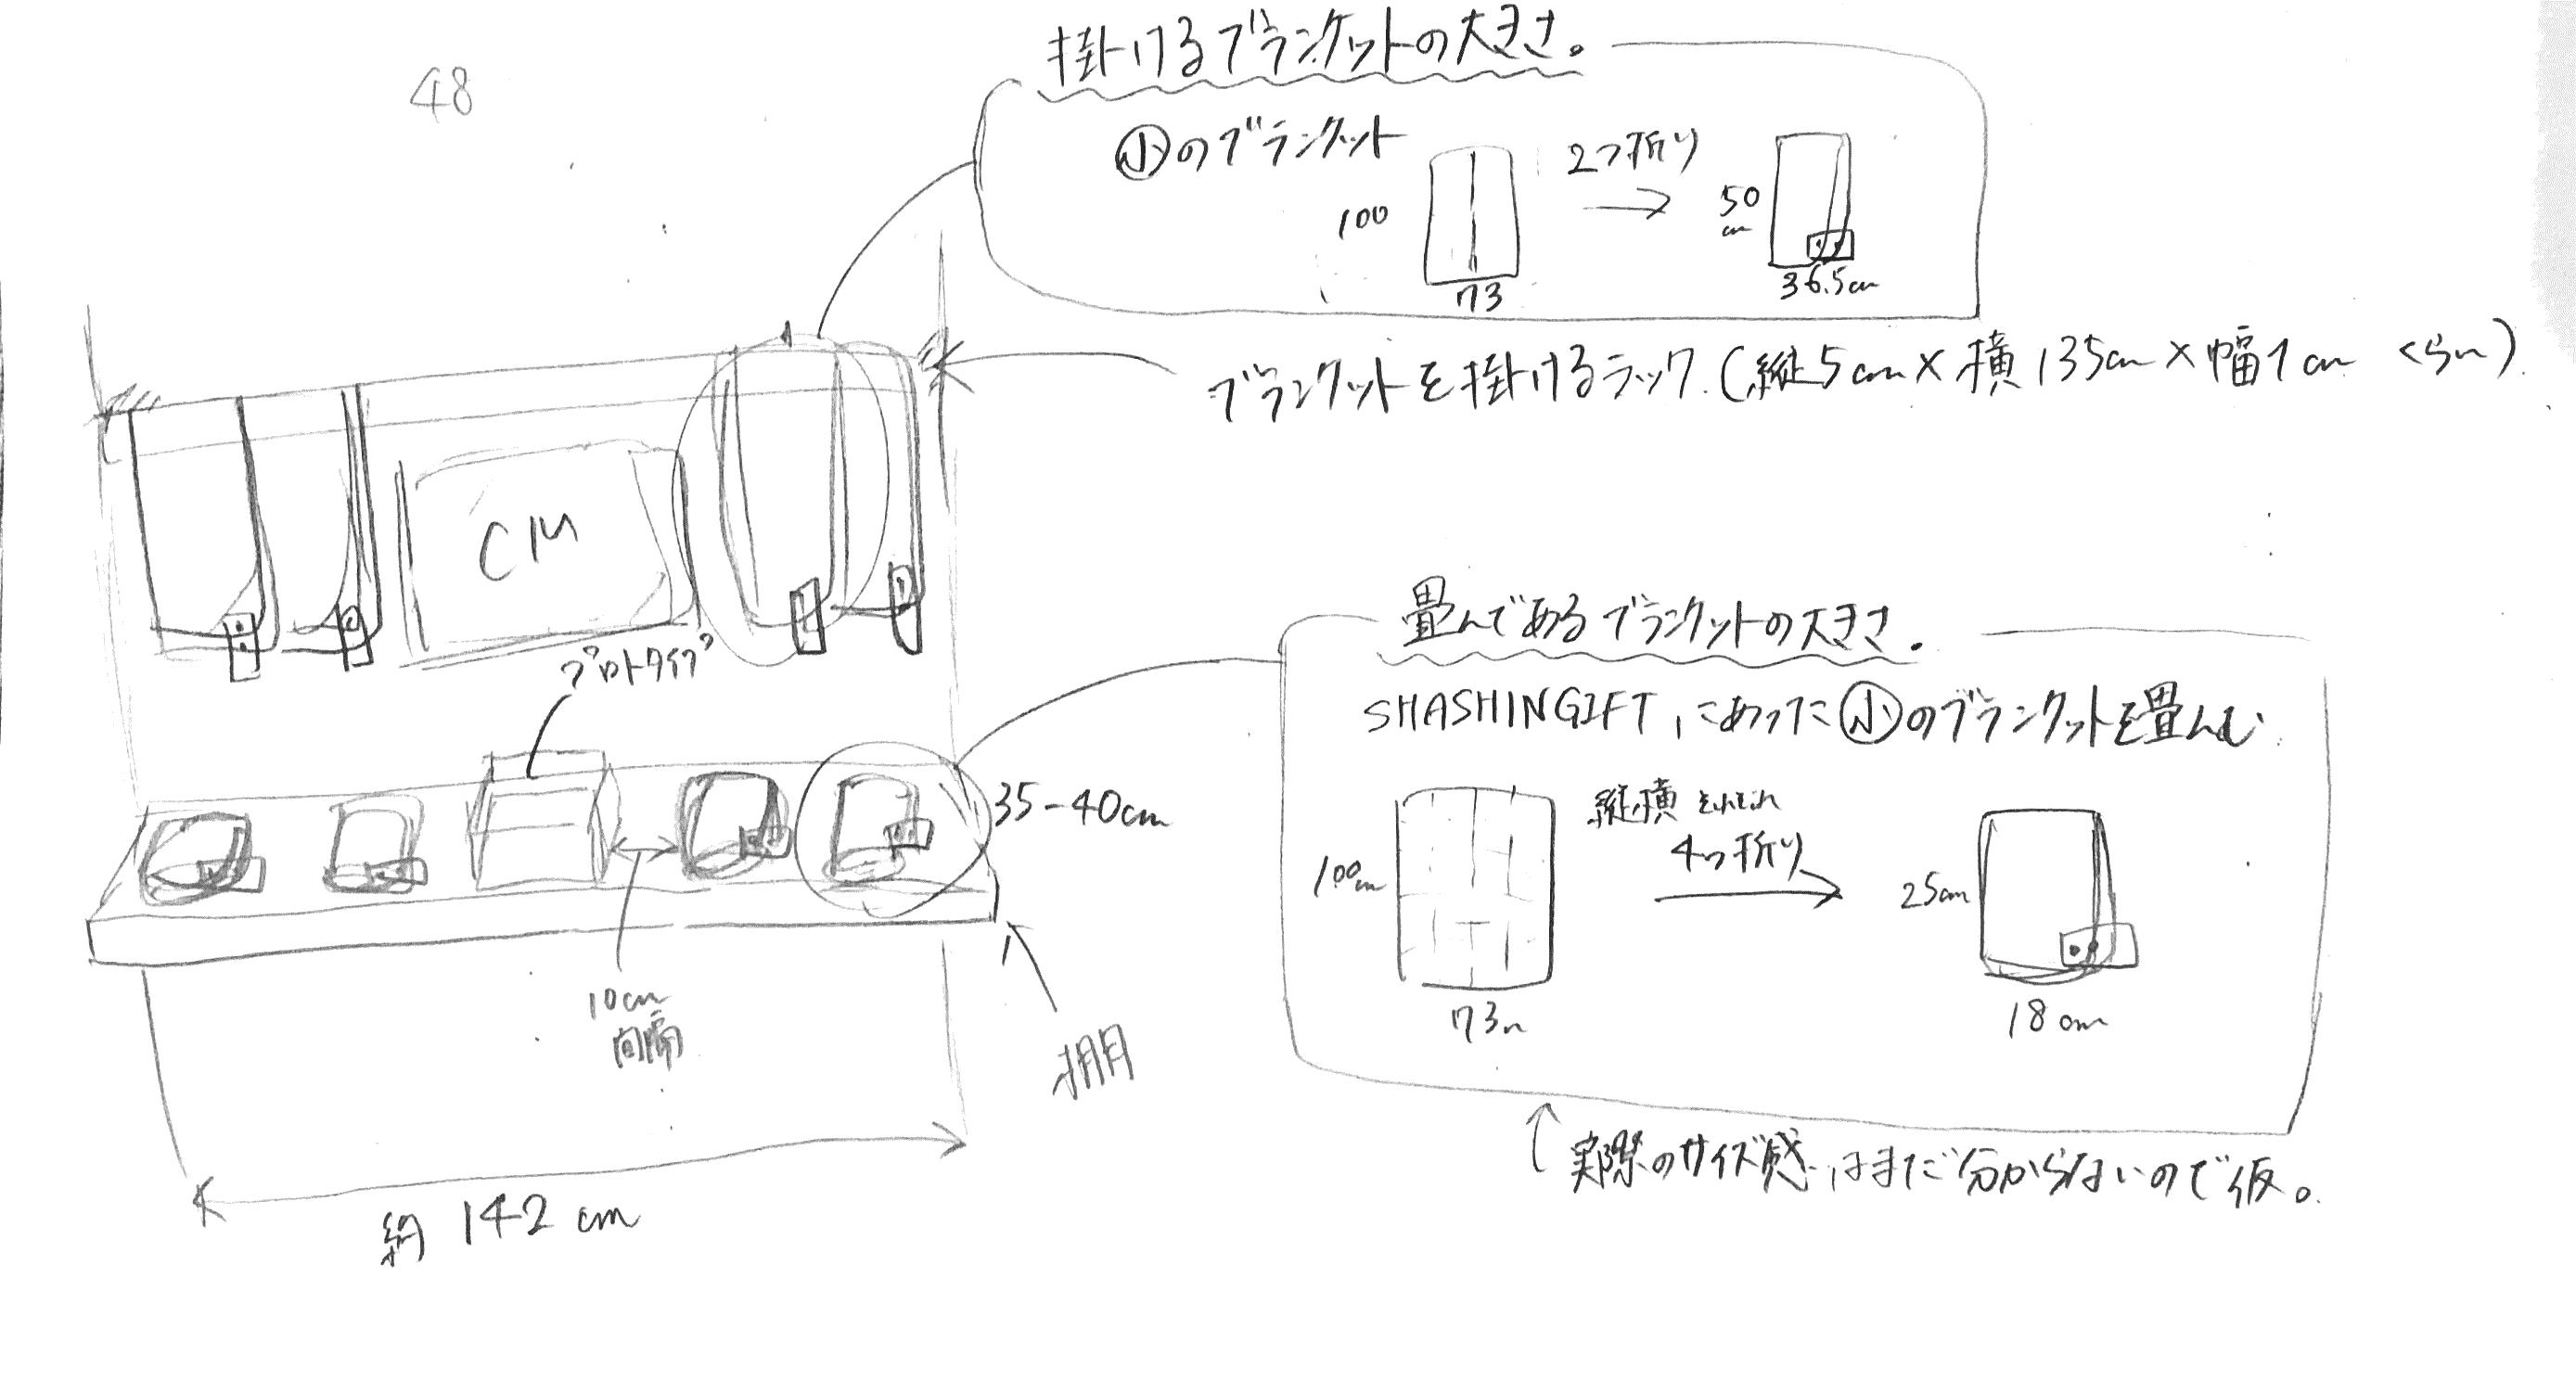 48
掛けるブランケットの大きさ。
小のブランケット
100
73
2つ折り
50
cm
36.5cm
ブランケットを掛けるラック.(縦5cm×横135cm×幅1cm くらい)
CM
プロトタイプ
35-40cm
10cm
間隔
棚
約 142 cm
畳んであるブランケットの大きさ.
SHASHINGIFTにあった小のブランケットを畳んむ
100cm
73
縦横 それぞれ
4つ折り
25cm
18cm
実際のサイズ感はまだ分からないので仮。